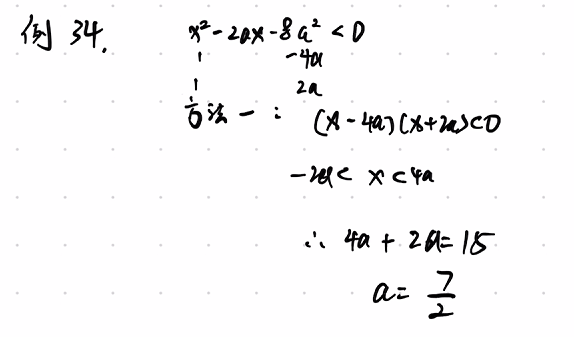 例 34. x² - 2ax - 8a² < 0
1 -4a
1 2a
方法一: (x - 4a)(x + 2a) < 0
-2a < x < 4a
∴ 4a + 2a = 15
a = 7/2